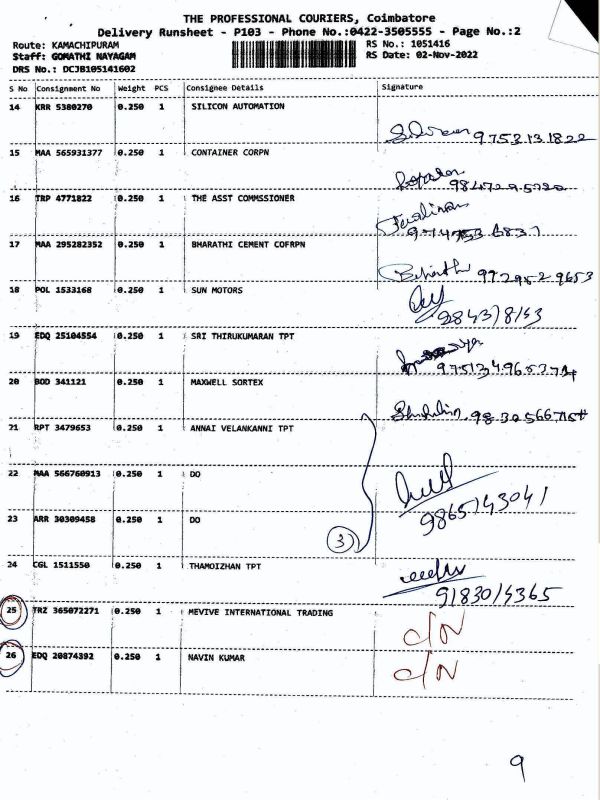 THE PROFESSIONAL COURIERS, Coimbatore
Delivery Runsheet - P103 - Phone No.:0422-3505555 - Page No.:2
Route: KAMACHIPURAM RS No.: 1051416
Staff: GOMATHI NAYAGAM RS Date: 02-Nov-2022
DRS No.: DCJB105141602
S No Consignment No Weight PCS Consignee Details Signature
14 KRR 5380270 0.250 1 SILICON AUTOMATION
9753131822
15 MAA 565931377 0.250 1 CONTAINER CORPN
16 TRP 4771822 0.250 1 THE ASST COMMSSIONER
17 MAA 295282352 0.250 1 BHARATHI CEMENT COFRPN
18 POL 1533168 0.250 1 SUN MOTORS
19 EDQ 25104554 0.250 1 SRI THIRUKUMARAN TPT
20 BOD 341121 0.250 1 MAXWELL SORTEX
21 RPT 3479653 0.250 1 ANNAI VELANKANNI TPT
22 MAA 566760913 0.250 1 DO
9865143041
23 ARR 30309458 0.250 1 DO
3
24 CGL 1511550 0.250 1 THAMOIZHAN TPT
9183014365
25 TRZ 365072271 0.250 1 MEVIVE INTERNATIONAL TRADING
C/N
26 EDQ 20874392 0.250 1 NAVIN KUMAR
C/N
9